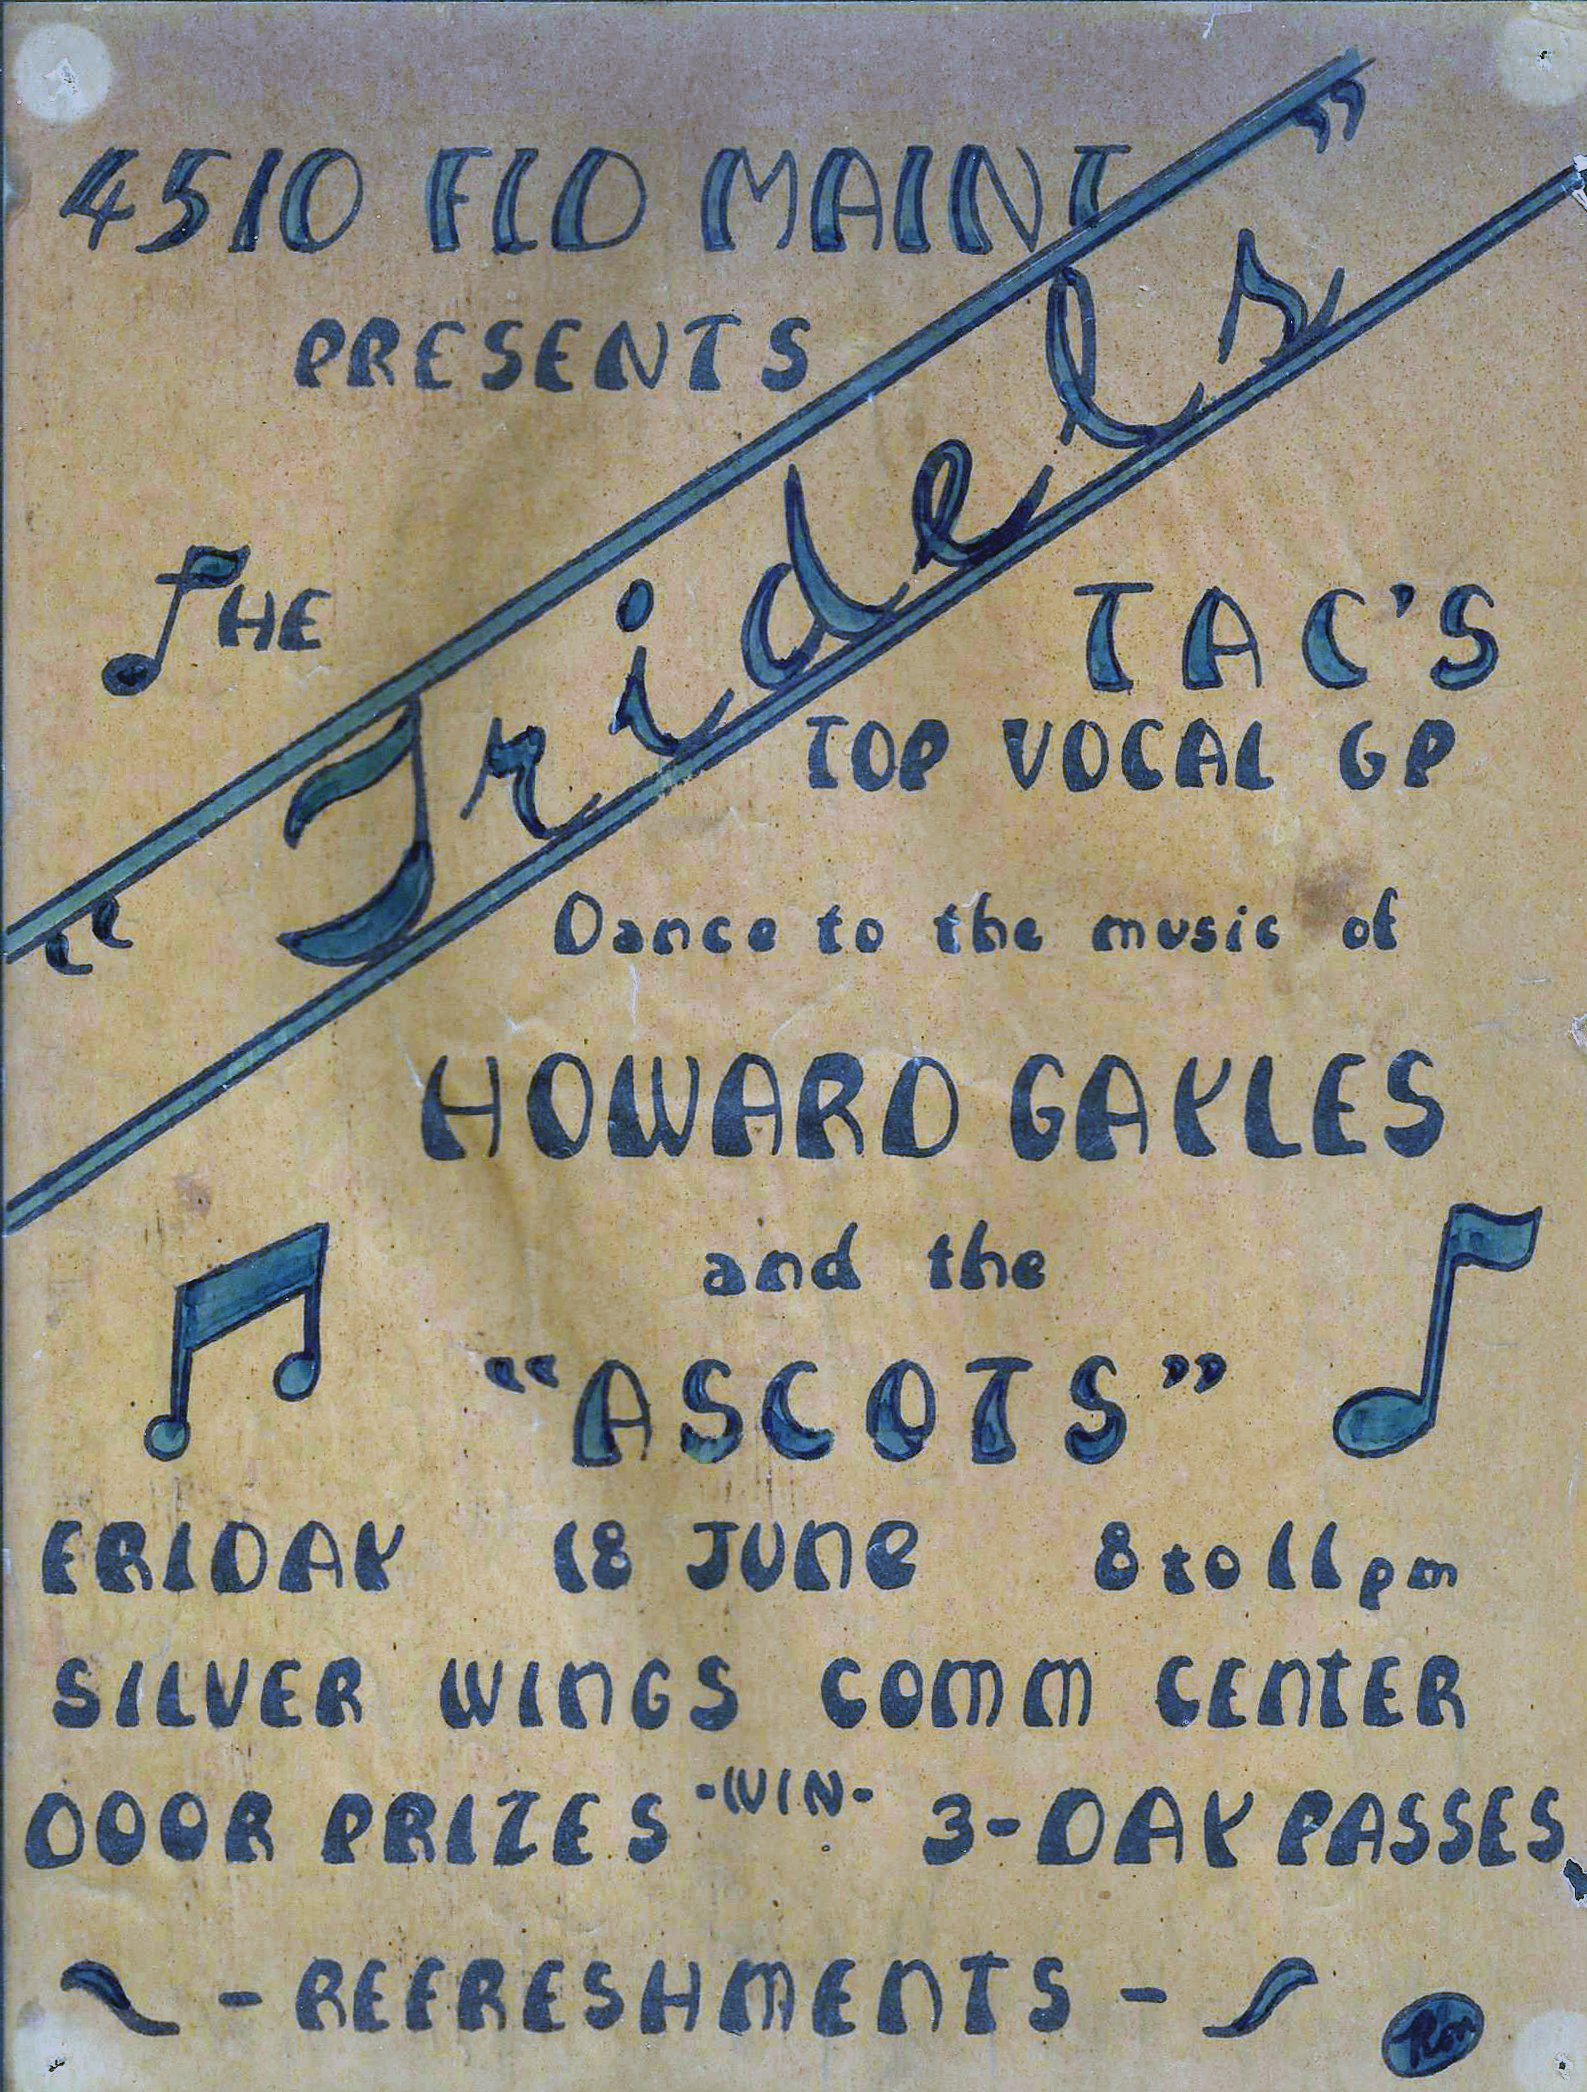 4510 FLD MAINT
PRESENTS
THE
“Tridels”
TAC'S
TOP VOCAL GP
Dance to the music of
HOWARD GAYLES
and the
“ASCOTS”
FRIDAY 18 JUNE 8 to 11 pm
SILVER WINGS COMM CENTER
DOOR PRIZES -WIN- 3-DAY PASSES
- REFRESHMENTS -